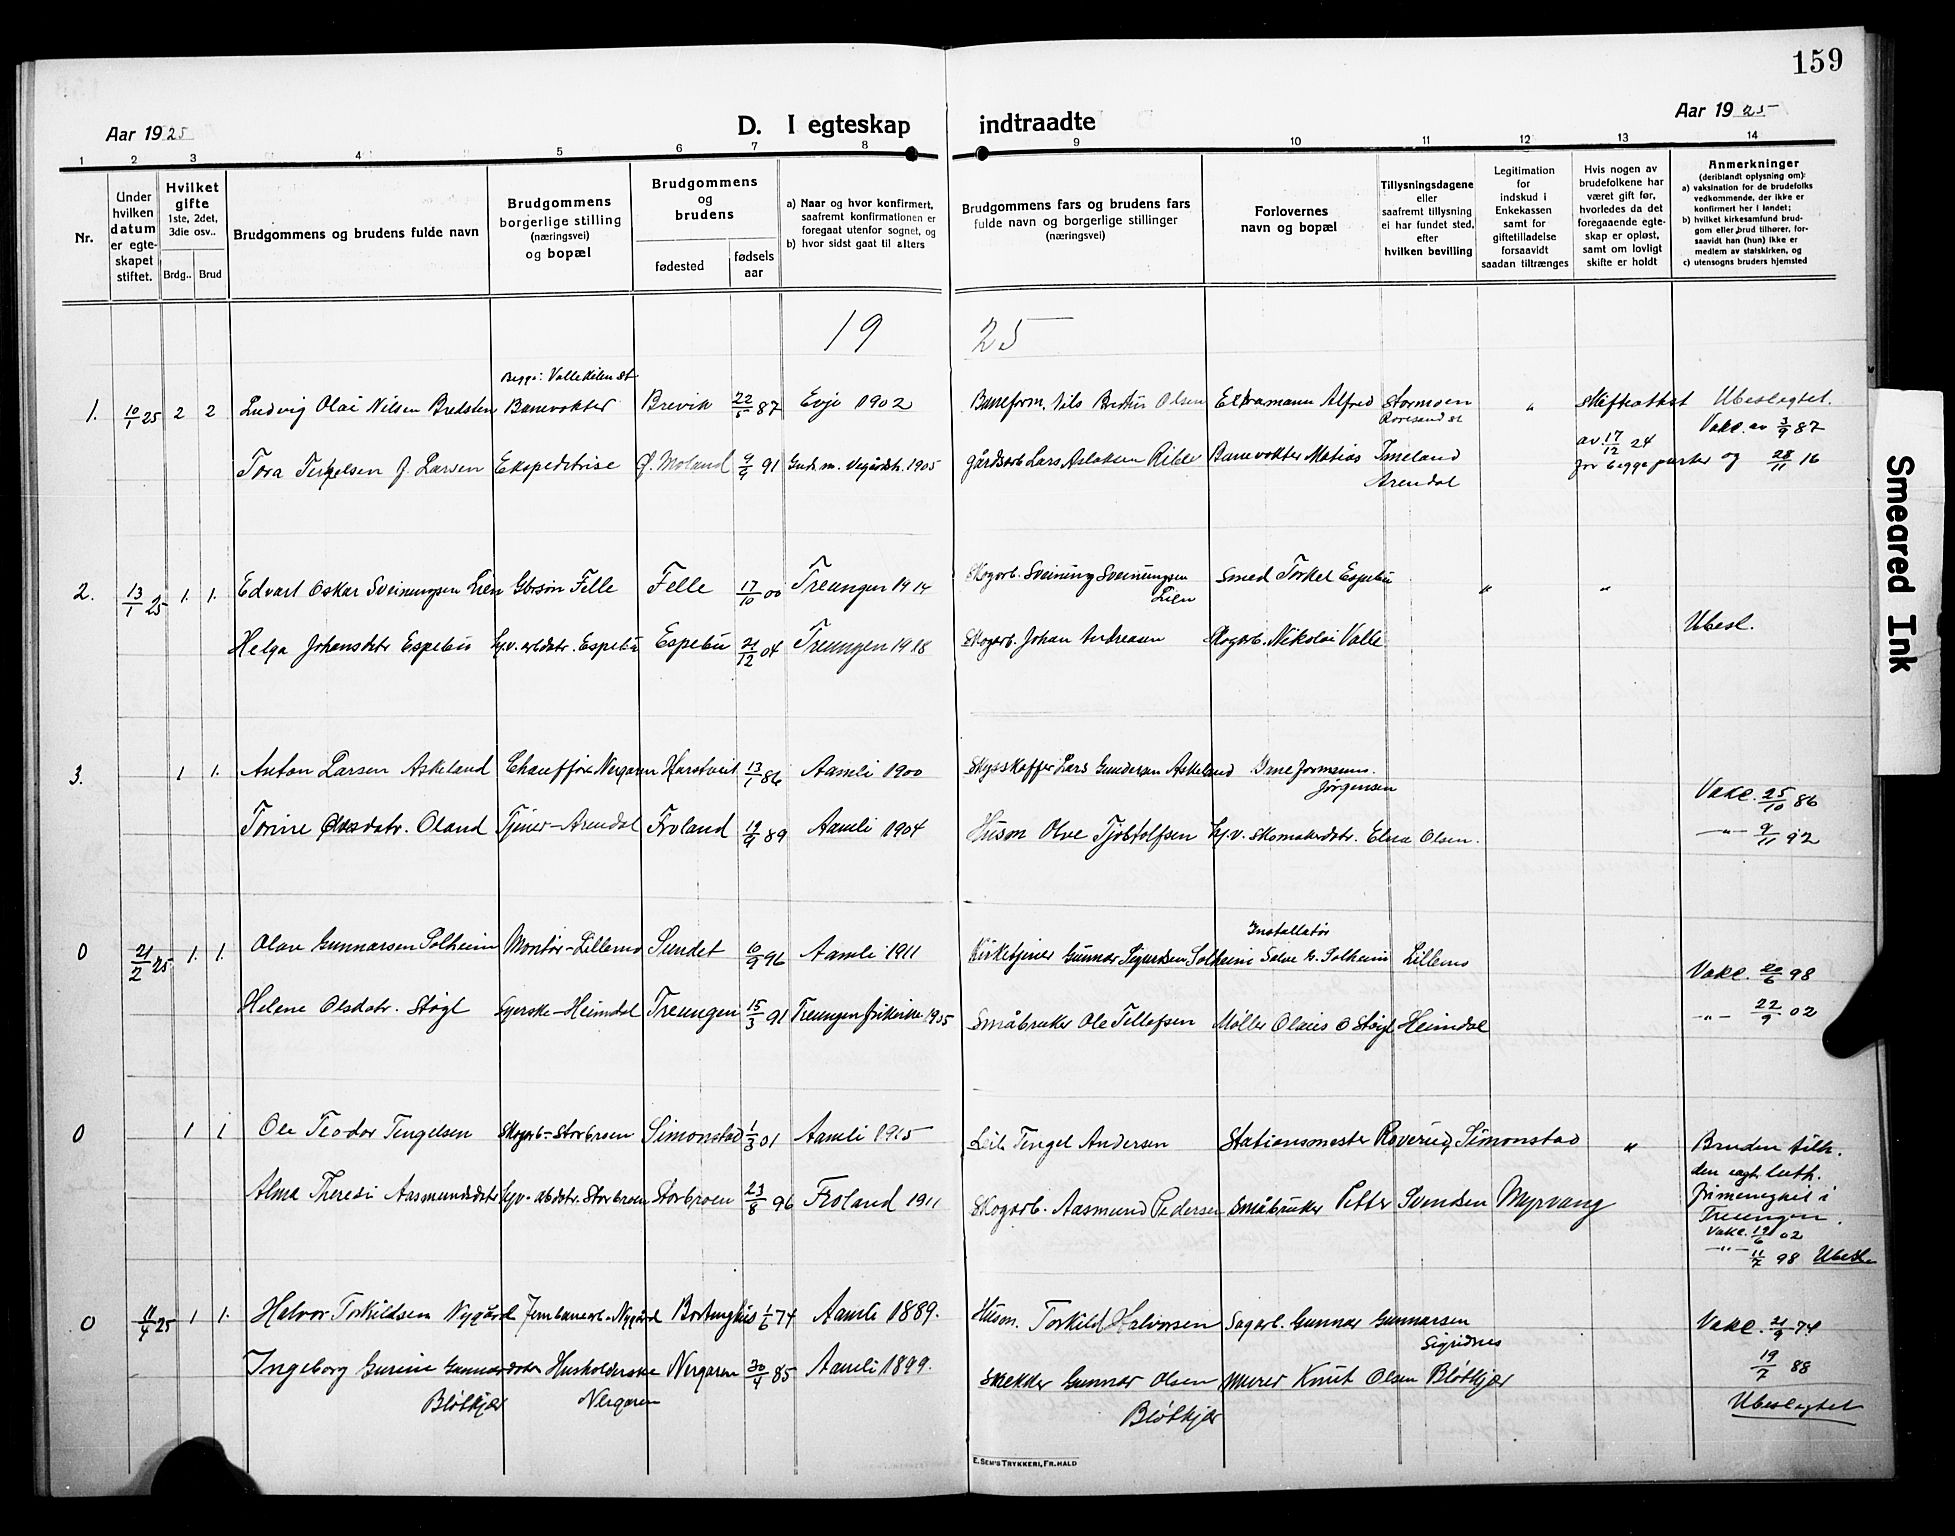 159
Aar 1925
D. I egteskap indtraadte
Aar 1925
1 2 3 4 5 6 7 8 9 10 11 12 13 14
Nr.
Under hvilken datum er egteskapet stiftet.
Hvilket gifte 1ste, 2det, 3die osv..
Brdg.. Brud
Brudgommens og brudens fulde navn
Brudgommens borgerlige stilling (næringsvei) og bopæl
Brudgommens og brudens
fødested
fødsels aar
a) Naar og hvor konfirmert, saafremt konfirmationen er foregaat utenfor sognet, og
b) hvor sidst gaat til alters
Brudgommens fars og brudens fars fulde navn og borgerlige stillinger (næringsvei)
Forlovernes navn og bopæl
Tillysningsdagene eller saafremt tillysning ei har fundet sted, efter hvilken bevilling
Legitimation for indskud i Enkekassen samt for giftetilladelse forsaavidt saadan tiltrænges
Hvis nogen av brudefolkene har været gift før, hvorledes da det foregaaende egteskap er opløst, samt om lovligt skifte er holdt
Anmerkninger
(deriblandt oplysning om):
a) vaksination for de brudefolks vedkommende, der ikke er konfirmert her i landet;
b) hvilket kirkesamfund brudgom eller brud tilhører, forsaavidt han (hun) ikke er medlem av statskirken, og
c) utensogns bruders hjemsted
19 25
Begge: Vallekilen st
1. 10/1 25 2 2 Ludvig Olai Nilsen Bredsten Banevokter Brevik 22/5 87 Evje 1902 Baneform. Nils Olsen Alfred Stormoen Skifteattest Ubeslegtet.
Roresand st
av 17/12 24 Vakc. av 3/9 87
Tora Terkelsen f. Larsen Ekspeditrise Ø. Moland 9/9 91 1905 Gårdsarb. Lars Aslaksen Banevokter Matias Imeland for begge parter og 28/11 16
Arendal
2. 13/1 25 1. 1. Edvart Oskar Sveinungsen Lien Gbrsøn Felle Felle 17/10 00 Treungen 1914 Skogarb. Sveinung Sveinungsen Smed Torkel Espebu " "
Lien
Ubesl.
Helga Johansdatr Espebu Espebu Espebu 21/12 04 Treungen 1918 Skogarb. Johan Andreasen Skogarb. Nikolai Valle
3. 1 1. Anton Larsen Askeland Chauffør Nergaren Harstveit 13/1 86 Aamli 1900 Skysskaffer Lars Gundersen Askeland
Jørgensen
Vakc. 25/10 86
Torine Oland Tjener-Arendal Froland 19/9 89 Aamli 1904 Husm Olve Tjøstolfsen skomakerdatr. Elna Olsen. -"- 9/11 92
Installatør
0 21/2 25 1. 1. Olav Gunnarsen Solheim Montør-Lillemo Sundet 10/9 96 Aamli 1911 Kirketjener Gunnar Sigurdsen Solheim Salve G. Solheim Lillemo
Vakc. 20/6 98
Helene Olsdatr. Støyl Syerske-Heimdal Treungen 15/3 91 Treungen frikirke 1905 Småbruker Ole Tellefsen Møller Olaus O Støyl Heimdal -"- 22/9 02
0 1 1 Ole Teodor Tengelsen Skogarb-Storbroen Simonstad 1/3 01 Aamli 1915 Tengel Andersen Stationsmester Roverud, Simonstad " Bruden tilh.
den evgl. luth.
frimenighet i
Alma Theresi Aasmundsdatr Storbroen Storbroen 23/8 96 Froland 1911 Skogarb. Aasmund Pedersen Småbruker Petter Svendsen Myrvang
Treungen.
Vakc. 19/6 02
-"- 11/7 98 Ubesl.
0 11/4 25 1 1. Halvor Torkildsen Nygård Jernbanearb.-Nygård 1/6 74 Aamli 1889. Husm. Torkild Halvorsen Sagarb. Gunnar Gunnarsen Vakc. 21/9 74
Sigridnes
Ingeborg Gurine Gunnarsdatr Husholderske Nergaren 30/4 85 Aamli 1899. Skredder Gunnar Olsen Murer Knut Olsen Bløtkjær 19/7 88
Bløtkjær Nergaren Bløtkjær Ubeslegtet
E. SEM'S TRYKKERI, FR.HALD
Smeared Ink